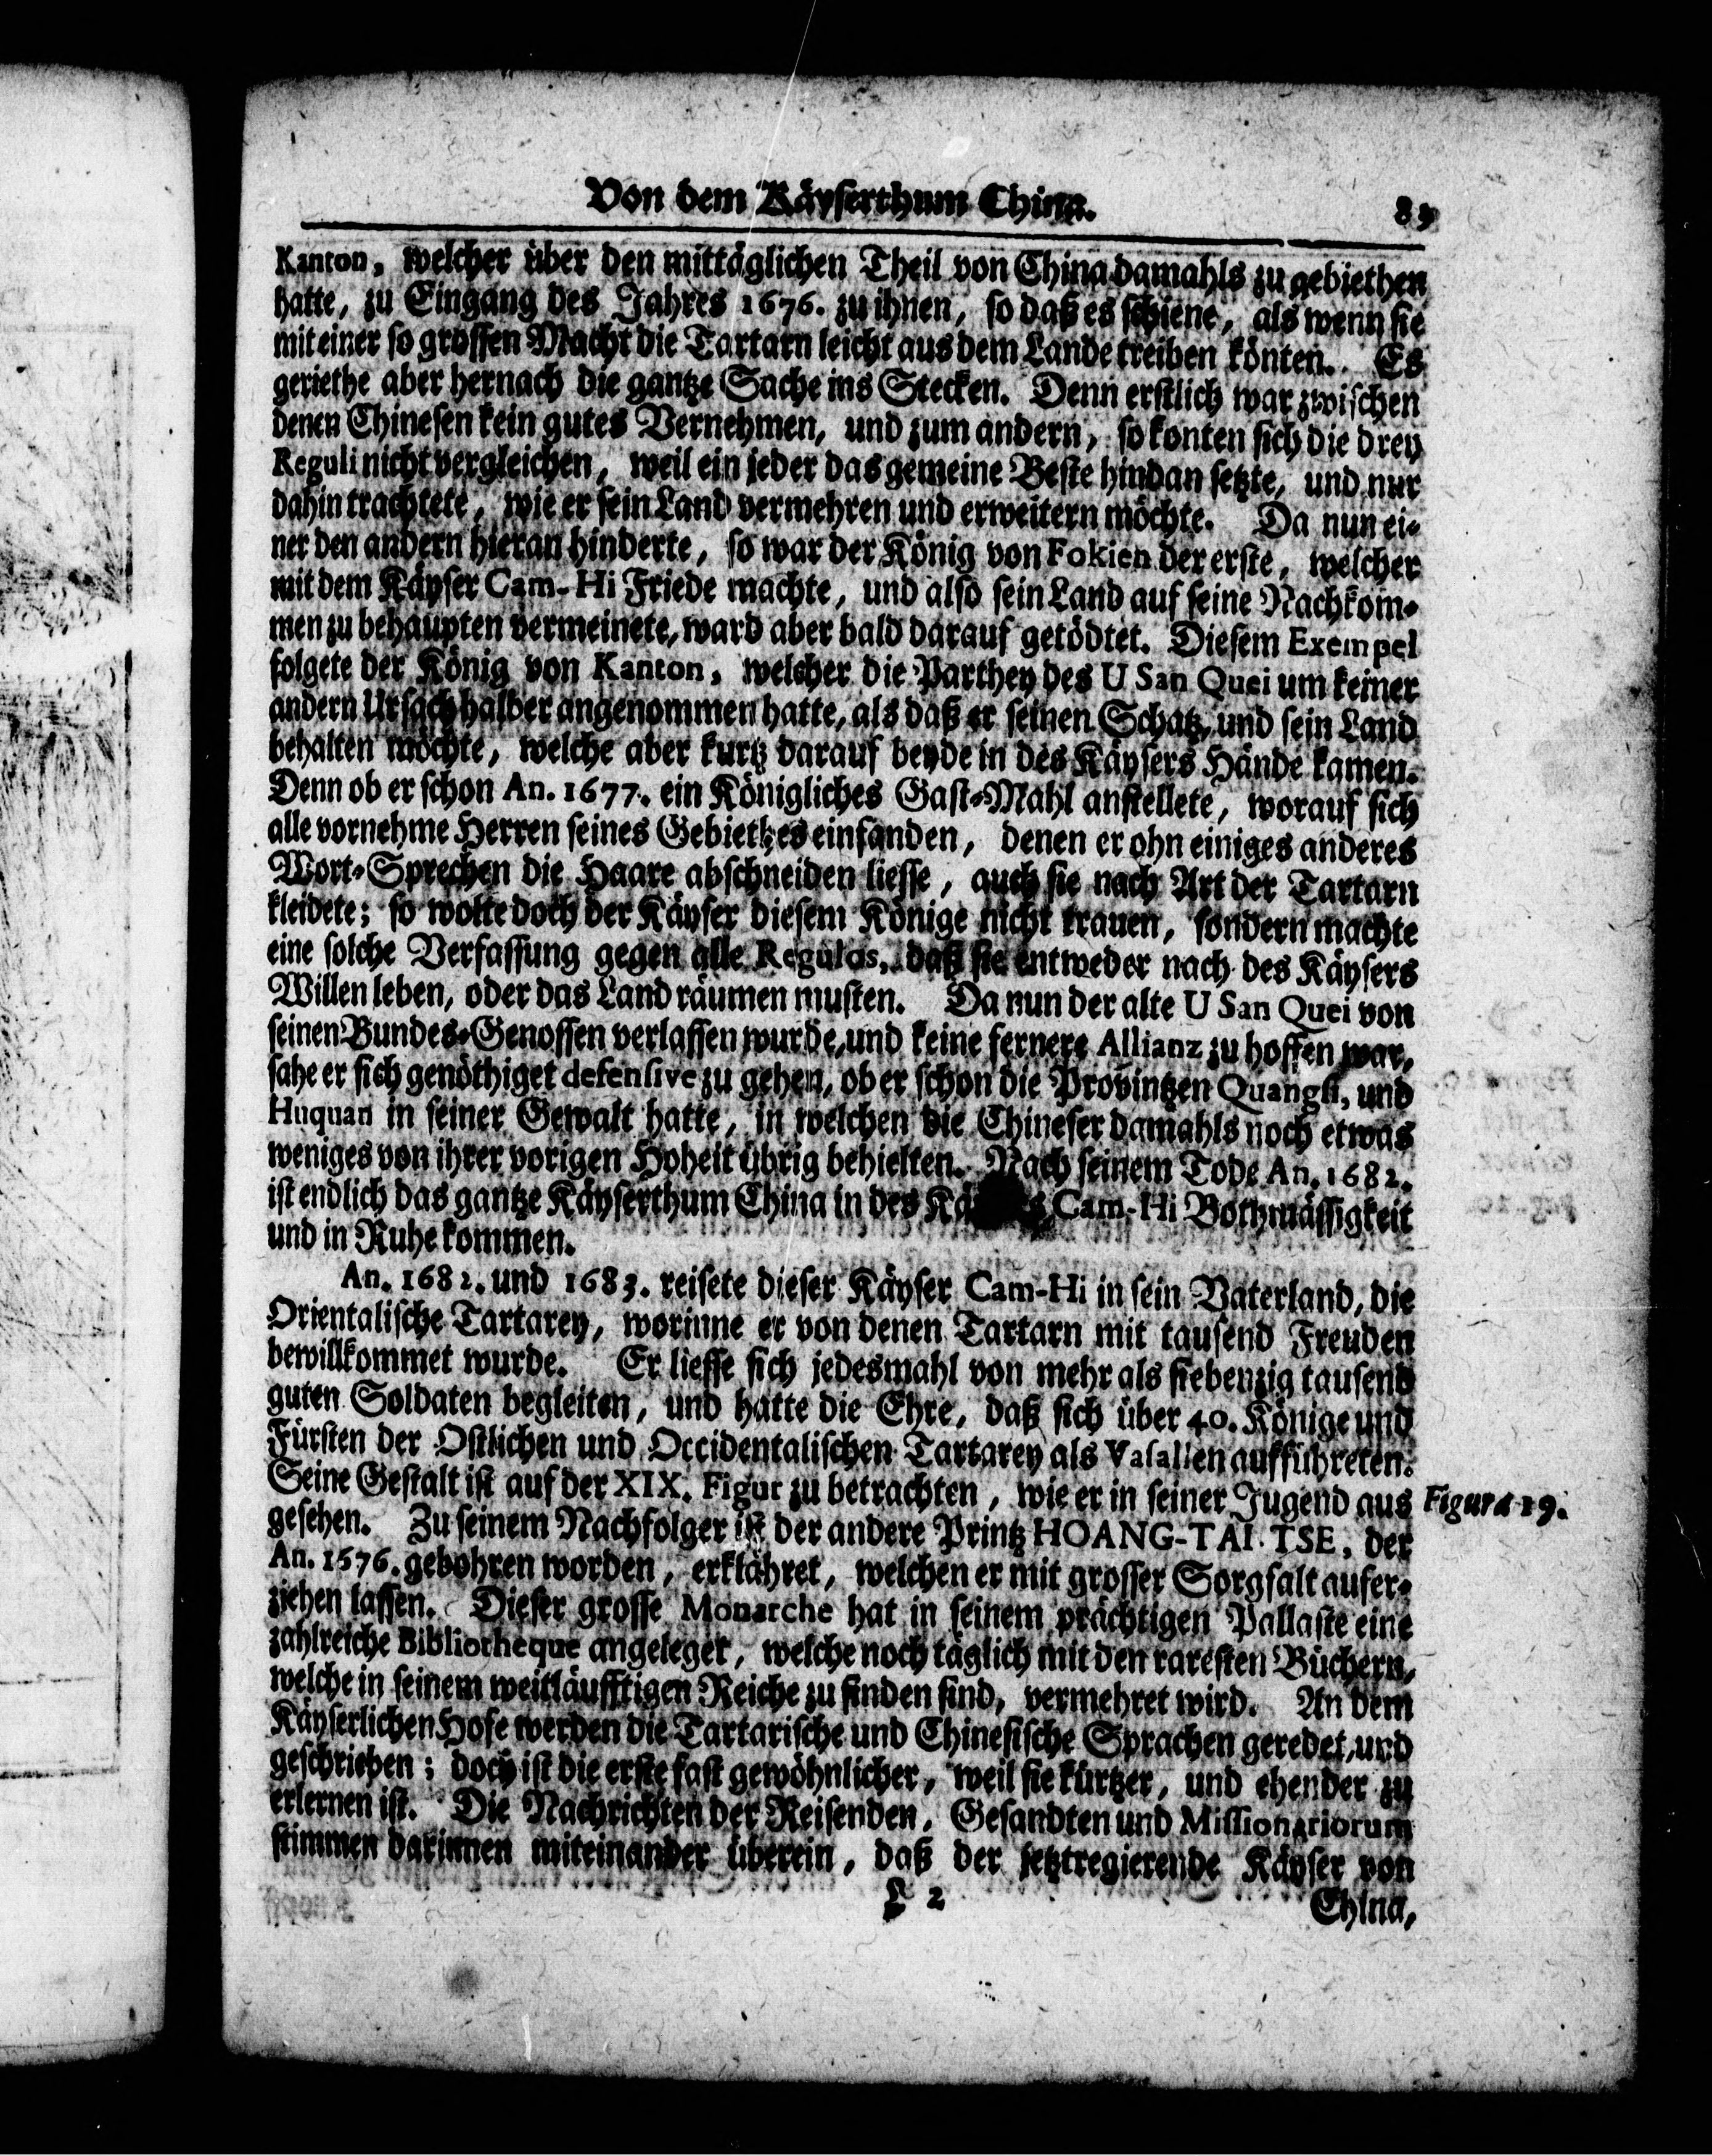 Von dem Käyserthum China.
Kanton, welcher über den mittäglichen Theil von China damahls zu gebiethen
hatte, zu Eingang des Jahres 1676. zu ihnen, so daß es schiene, als wenn sie
mit einer so grossen Macht die Tartarn leicht aus dem Lande treiben könten. Es
geriethe aber hernach die gantze Sache ins Stecken. Denn erstlich war zwischen
denen Chinesen kein gutes Vernehmen, und zum andern, so konten sich die drey
Reguli nicht vergleichen, weil ein jeder das gemeine Beste hindan setzte, und nur
dahin trachtete, wie er sein Land vermehren und erweitern möchte. Da nun ei-
ner den andern hieran hinderte, so war der König von Fokien der erste, welcher
mit dem Käyser Cam-Hi Friede machte, und also sein Land auf seine Nachkom-
men zu behaupten vermeinete, ward aber bald darauf getödtet. Diesem Exempel
folgete der König von Kanton, welcher die Parthey des U San Quei um keiner
andern Ursach halber angenommen hatte, als daß er seinen Schatz, und sein Land
behalten möchte, welche aber kurtz darauf beyde in des Käysers Hände kamen.
Denn ob er schon An. 1677. ein Königliches Gast-Mahl anstellete, worauf sich
alle vornehme Herren seines Gebiethes einfanden, denen er ohn einiges anderes
Wort-Sprechen die Haare abschneiden liesse, auch sie nach Art der Tartarn
kleidete; so wolte doch der Käyser diesem Könige nicht trauen, sondern machte
eine solche Verfassung gegen alle Regulos, daß sie entweder nach des Käysers
Willen leben, oder das Land räumen musten. Da nun der alte U San Quei von
seinen Bundes-Genossen verlassen wurde, und keine fernere Allianz zu hoffen war,
sahe er sich genöthiget defensive zu gehen, ob er schon die Provintzen Quangsi, und
Huquan in seiner Gewalt hatte, in welchen die Chineser damahls noch etwas
weniges von ihrer vorigen Hoheit übrig behielten. Nach seinem Tode An. 1682.
ist endlich das gantze Käyserthum China in des Cam-Hi Bothmässigkeit
und in Ruhe kommen.
An. 1682. und 1683. reisete dieser Käyser Cam-Hi in sein Vaterland, die
Orientalische Tartarey, worinne er von denen Tartarn mit tausend Freuden
bewillkommet wurde. Er liesse sich jedesmahl von mehr als siebenzig tausend
guten Soldaten begleiten, und hatte die Ehre, daß sich über 40. Könige und
Fürsten der Ostlichen und Occidentalischen Tartarey als Vasallen aufführeten.
Seine Gestalt ist auf der XIX. Figur zu betrachten, wie er in seiner Jugend aus
Figura 19.
gesehen. Zu seinem Nachfolger ist der andere Printz HOANG-TAI-TSE, der
An. 1676. gebohren worden, erklähret, welchen er mit grosser Sorgfalt aufer-
ziehen lassen. Dieser grosse Monarche hat in seinem prächtigen Pallaste eine
zahlreiche Bibliotheque angeleget, welche noch täglich mit den raresten Büchern,
welche in seinem weitläufftigen Reiche zu finden sind, vermehret wird. An dem
Käyserlichen Hofe werden die Tartarische und Chinesische Sprachen geredet, und
geschrieben; doch ist die erste fast gewöhnlicher, weil sie kürtzer, und ehender zu
erlernen ist. Die Nachrichten der Reisenden, Gesandten und Missionariorum
stimmen darinnen miteinander überein, daß der jetztregierende Käyser von
L 2
China,